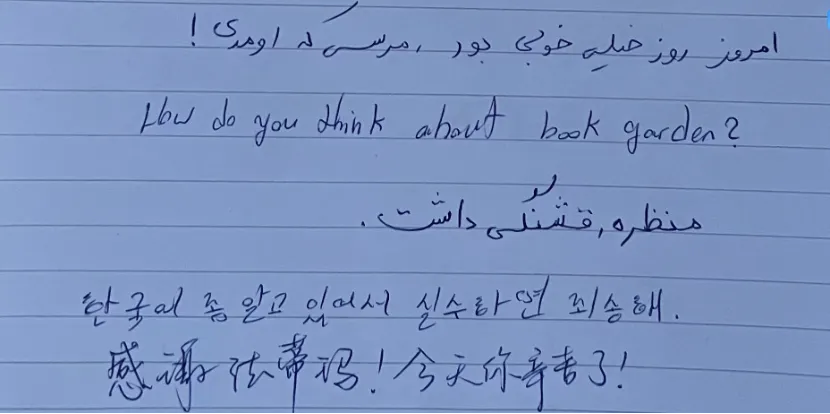 امروز روز خیلیه خوبی بود ,مرسی که اومدی!
How do you think about book garden?
منظره, قشنگی داشت.
한국어 좀 알고 있어서 실수하면 죄송해.
感谢法蒂玛!今天你辛苦了!